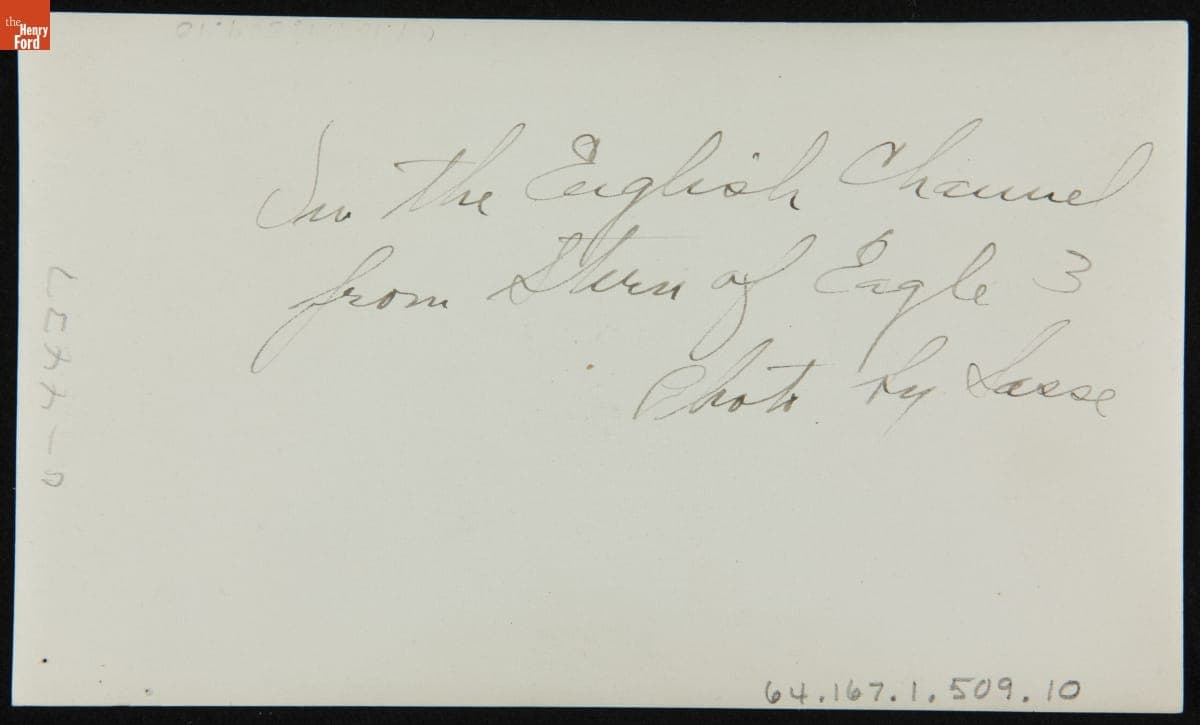 the
Henry
Ford
In the English Channel
from Stern of Eagle 3
Photo by Sasse
64.167.1.509.10